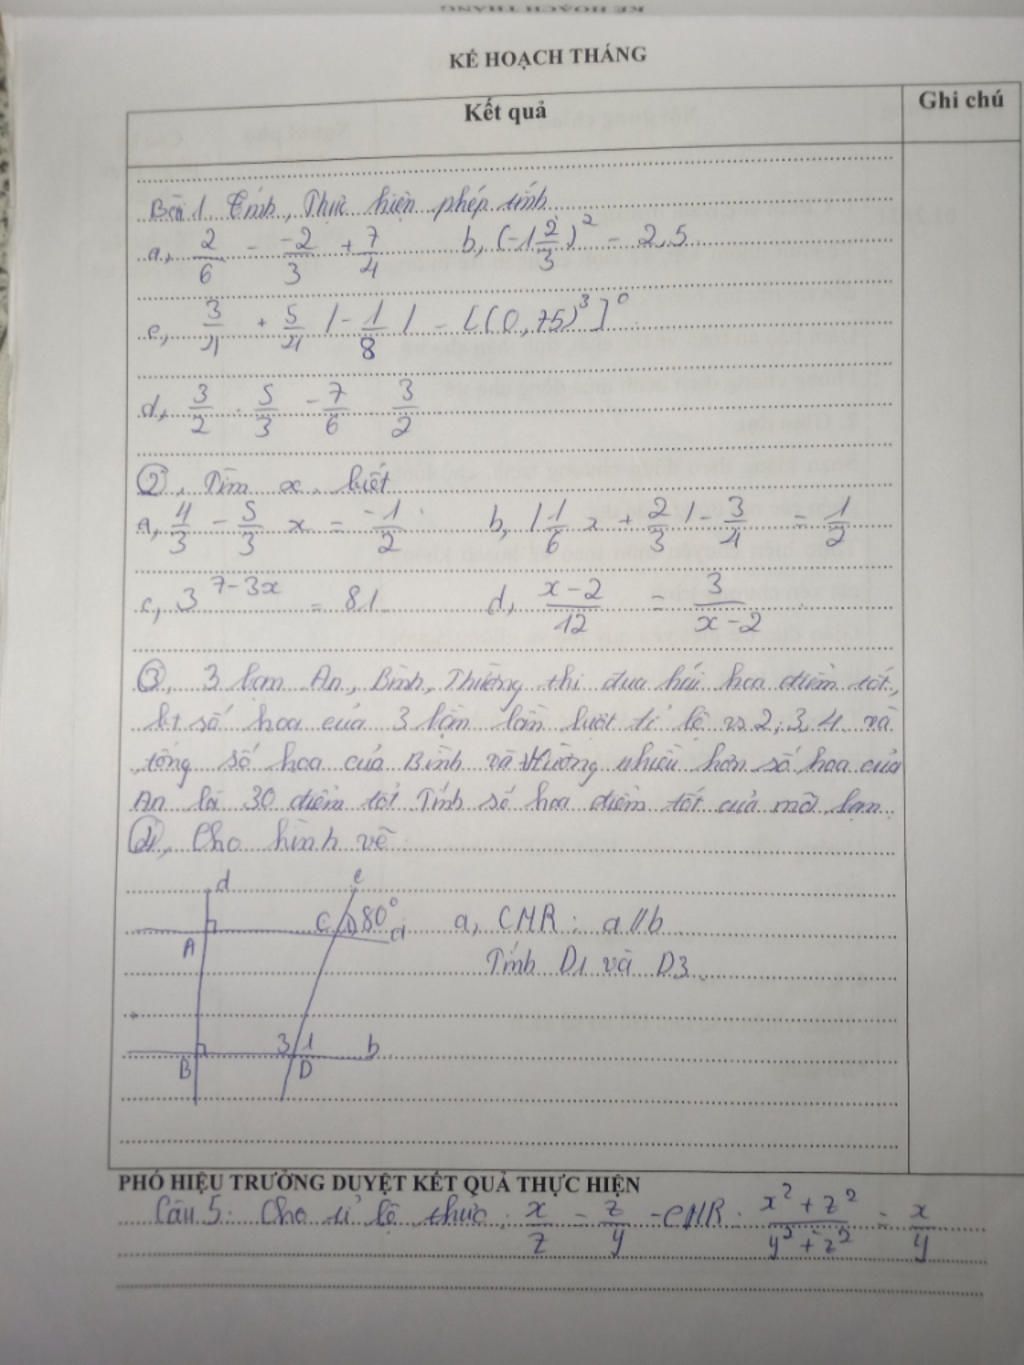 KẾ HOẠCH THÁNG
KẾ HOẠCH THÁNG
Kết quả
Ghi chú
Bài 1. Tính, Thực hiện phép tính
a, 2/6 - -2/3 + 7/4 b, (-1 2/3)^2 - 2,5
c, 3/4 + 5/4 |-1/8| - [(0,75)^3]^0
d, 3/2 . 5/3 - 7/6 . 3/2
②, Tìm x, biết
a, 4/3 - 5/3 x = -1/2 b, |1/6 x + 2/3| - 3/4 = 1/2
c, 3^(7-3x) = 81 d, (x-2)/12 = 3/(x-2)
③, 3 bạn An, Bình, thi đua hái hoa điểm tốt,
bt số hoa của 3 bạn lần lượt tỉ lệ vs 2; 3, 4 và
tổng số hoa của Bình và nhiều hơn số hoa của
An là 30 điểm tốt Tính số hoa điểm tốt của mỗi bạn
④, Cho hình vẽ
d c
A C 80° a
a, CMR: a//b
Tính D1 và D3
3 1 b
B D
PHÓ HIỆU TRƯỞNG DUYỆT KẾT QUẢ THỰC HIỆN
Câu 5. Cho tỉ lệ thức: x/z = z/y - CMR: (x^2+z^2)/(y^2+z^2) = x/y